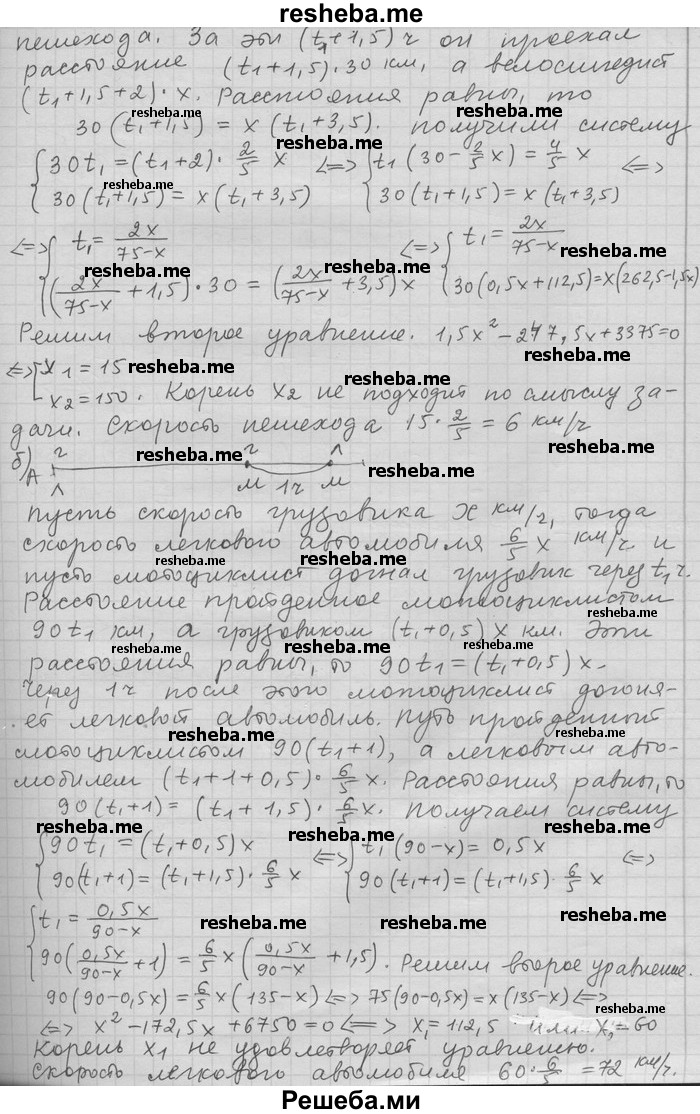 resheba.me
пешехода. За эти (t₁+1,5) ч он проехал
расстояние (t₁+1,5)·30 км, а велосипедист
(t₁+1,5+2)·x. Расстояния равны, то
30(t₁+1,5) = x(t₁+3,5). получили систему
{30t₁=(t₁+2)·2/5 x <=> {t₁(30-2/5x)=4/5 x <=>
{30(t₁+1,5)= x(t₁+3,5) {30(t₁+1,5)=x(t₁+3,5)
<=> {t₁=2x/75-x <=> {t₁=2x/75-x
{(2x/75-x+1,5)·30=(2x/75-x+3,5)x {30(0,5x+112,5)=x(262,5-1,5x)
Решим второе уравнение. 1,5x²-247,5x+3375=0
<=> [x₁=15
[x₂=150. Корень x₂ не подходит по смыслу за-
дачи. Скорость пешехода 15·2/5=6 км/ч
б) г г л
А л м 1ч м
пусть скорость грузовика x км/ч, тогда
скорость легкового автомобиля 6/5 x км/ч и
пусть мотоциклист догнал грузовик через t₁ ч.
Расстояние пройденное мотоциклистом
90t₁ км, а грузовиком (t₁+0,5)x км. Эти
расстояния равны, то 90t₁=(t₁+0,5)x.
Через 1ч после этого мотоциклист догоня-
ет легковой автомобиль. путь пройденный
мотоциклистом 90(t₁+1), а легковым авто-
мобилем (t₁+1+0,5)·6/5x. Расстояния равны, то
90(t₁+1)=(t₁+1,5)·6/5x. получаем систему
{90t₁=(t₁+0,5)x <=> {t₁(90-x)=0,5x <=>
{90(t₁+1)=(t₁+1,5)·6/5 x {90(t₁+1)=(t₁+1,5)·6/5 x
{t₁=0,5x/90-x
{90(0,5x/90-x+1)=6/5x(0,5x/90-x+1,5). Решим второе уравнение.
90(90-0,5x)=6/5x(135-x)<=>75(90-0,5x)=x(135-x)<=>
<=> x²-172,5x+6750=0<=>x₁=112,5 или x₂=60
Корень x₁ не удовлетворяет уравнению.
Скорость легкового автомобиля 60·6/5=72 км/ч.
Решеба.ми